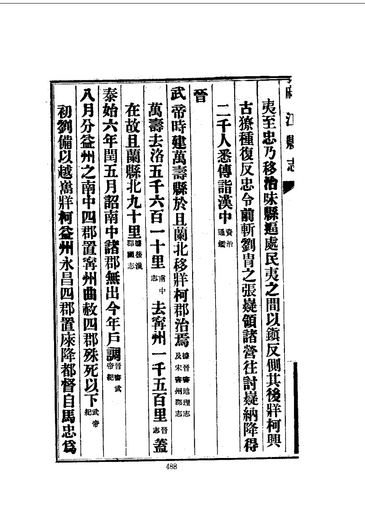 江縣志
夷至忠乃移治味縣逼處民夷之間以鎮反側其後牂柯興
古獠種復反忠令前斬劉胄之張嶷領諸營往討嶷納降得
二千人悉傳詣漢中資治通鑑
晉
武帝時建萬壽縣於且蘭北移牂柯郡治焉據晉書地理志及宋書州郡志
萬壽去洛五千六百一十里南中志去寧州一千五百里晉志蓋
在故且蘭縣北九十里據後漢郡國志
泰始六年閏五月詔南中諸郡無出今年戶調晉書武帝紀
八月分益州之南中四郡置寧州曲赦四郡殊死以下武帝紀
初劉備以越嶲牂柯益州永昌四郡置庲降都督自馬忠爲
488